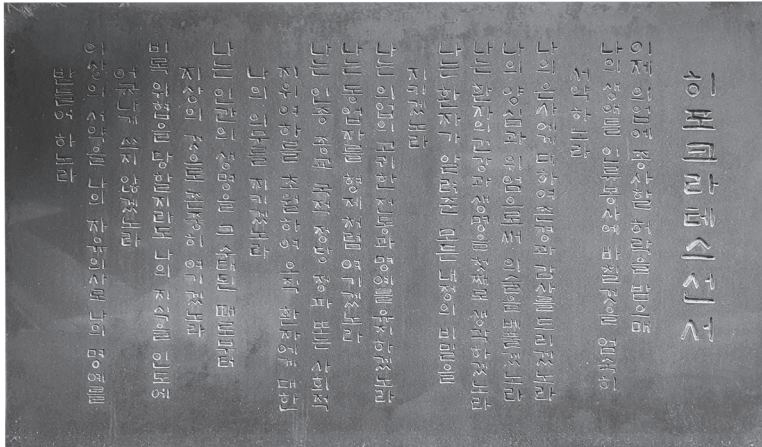 히포크라테스선서
이제 의업에 종사할 허락을 받으매
나의 생애를 인류봉사에 바칠 것을 엄숙히
서약하노라
나의 은사에게 대하여 존경과 감사를 드리겠노라
나의 양심과 위엄으로써 의술을 베풀겠노라
나는 환자의 건강과 생명을 첫째로 생각하겠노라
나는 환자가 알려준 모든 내정의 비밀을
지키겠노라
나는 의업의 고귀한 전통과 명예를 유지하겠노라
나는 동업자를 형제처럼 여기겠노라
나는 인종 종교 국적 정당 정파 또는 사회적
지위 여하를 초월하여 오직 환자에게 대한
나의 의무를 지키겠노라
나는 인간의 생명을 그 수태된 때로부터
지상의 것으로 존중히 여기겠노라
비록 위협을 당할지라도 나의 지식을 인도에
어긋나게 쓰지 않겠노라
이상의 서약을 나의 자유의사로 나의 명예를
받들어 하노라